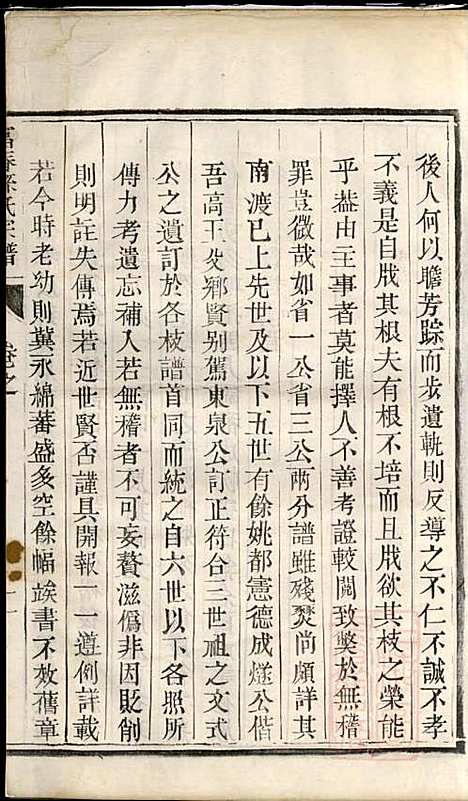 後人何以瞻芳踪而步遺軌則反導之不仁不誠不孝
不義是自戕其根夫有根不培而且戕欲其枝之榮能
乎蓋由主事者莫能擇人不善考證較閱致獘於無稽
罪豈微哉如省一公省三公兩分譜雖殘燹尚頗詳其
南渡已上先世及以下五世有餘姚都憲德成燧公偕
吾高王父鄉賢别駕東泉公訂正符合三世祖之文式
公之遺訂於各枝譜首同而統之自六世以下各照所
傳力考遺忘補入若無稽者不可妄贅滋僞非因貶削
則明註失傳焉若近世賢否謹具開報一遵例詳載
若今時老幼則冀永綿蕃盛多空餘幅竢書不效舊章
富春孫氏宗譜 卷之一